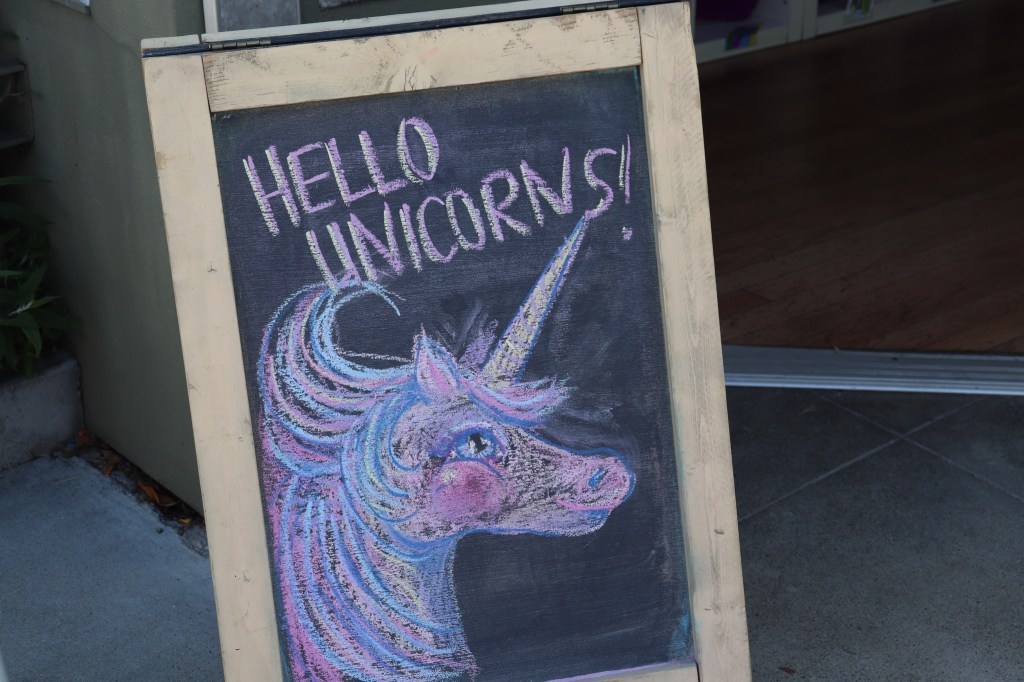 HELLO
UNICORNS!